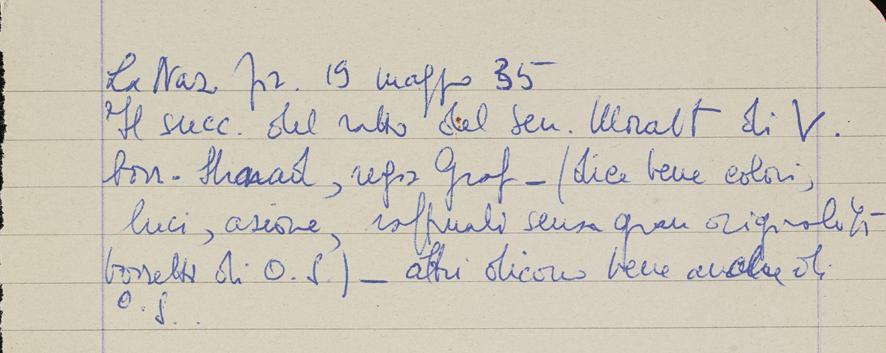 La Naz. Fir. 19 maggio 35
Il succ. del ratto del sen. Moralt di V.
Graf - (dice bene colori,
luci, azione, senza gran originalità
bozzetto di O. S.) - altri dicono bene anche di
O. S..